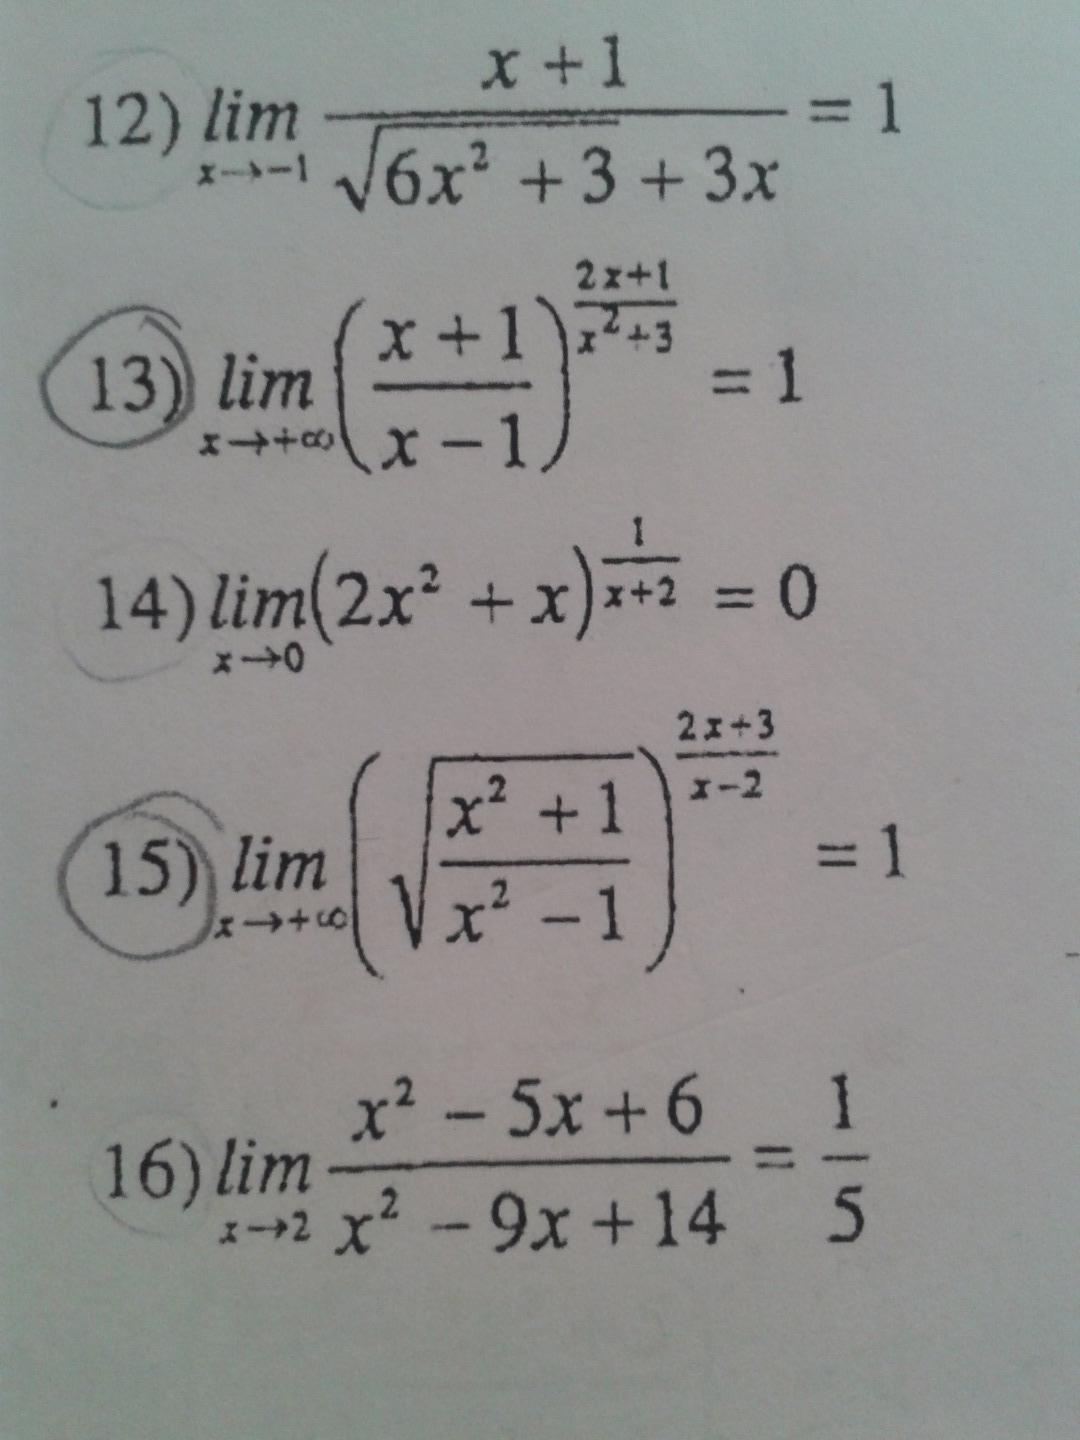 12) lim x→-1 (x + 1)/(√(6x² + 3) + 3x) = 1
13) lim x→+∞ ((x + 1)/(x - 1))^((2x+1)/(x²+3)) = 1
14) lim x→0 (2x² + x)^(1/(x+2)) = 0
15) lim x→+∞ (√((x² + 1)/(x² - 1)))^((2x+3)/(x-2)) = 1
16) lim x→2 (x² - 5x + 6)/(x² - 9x + 14) = 1/5